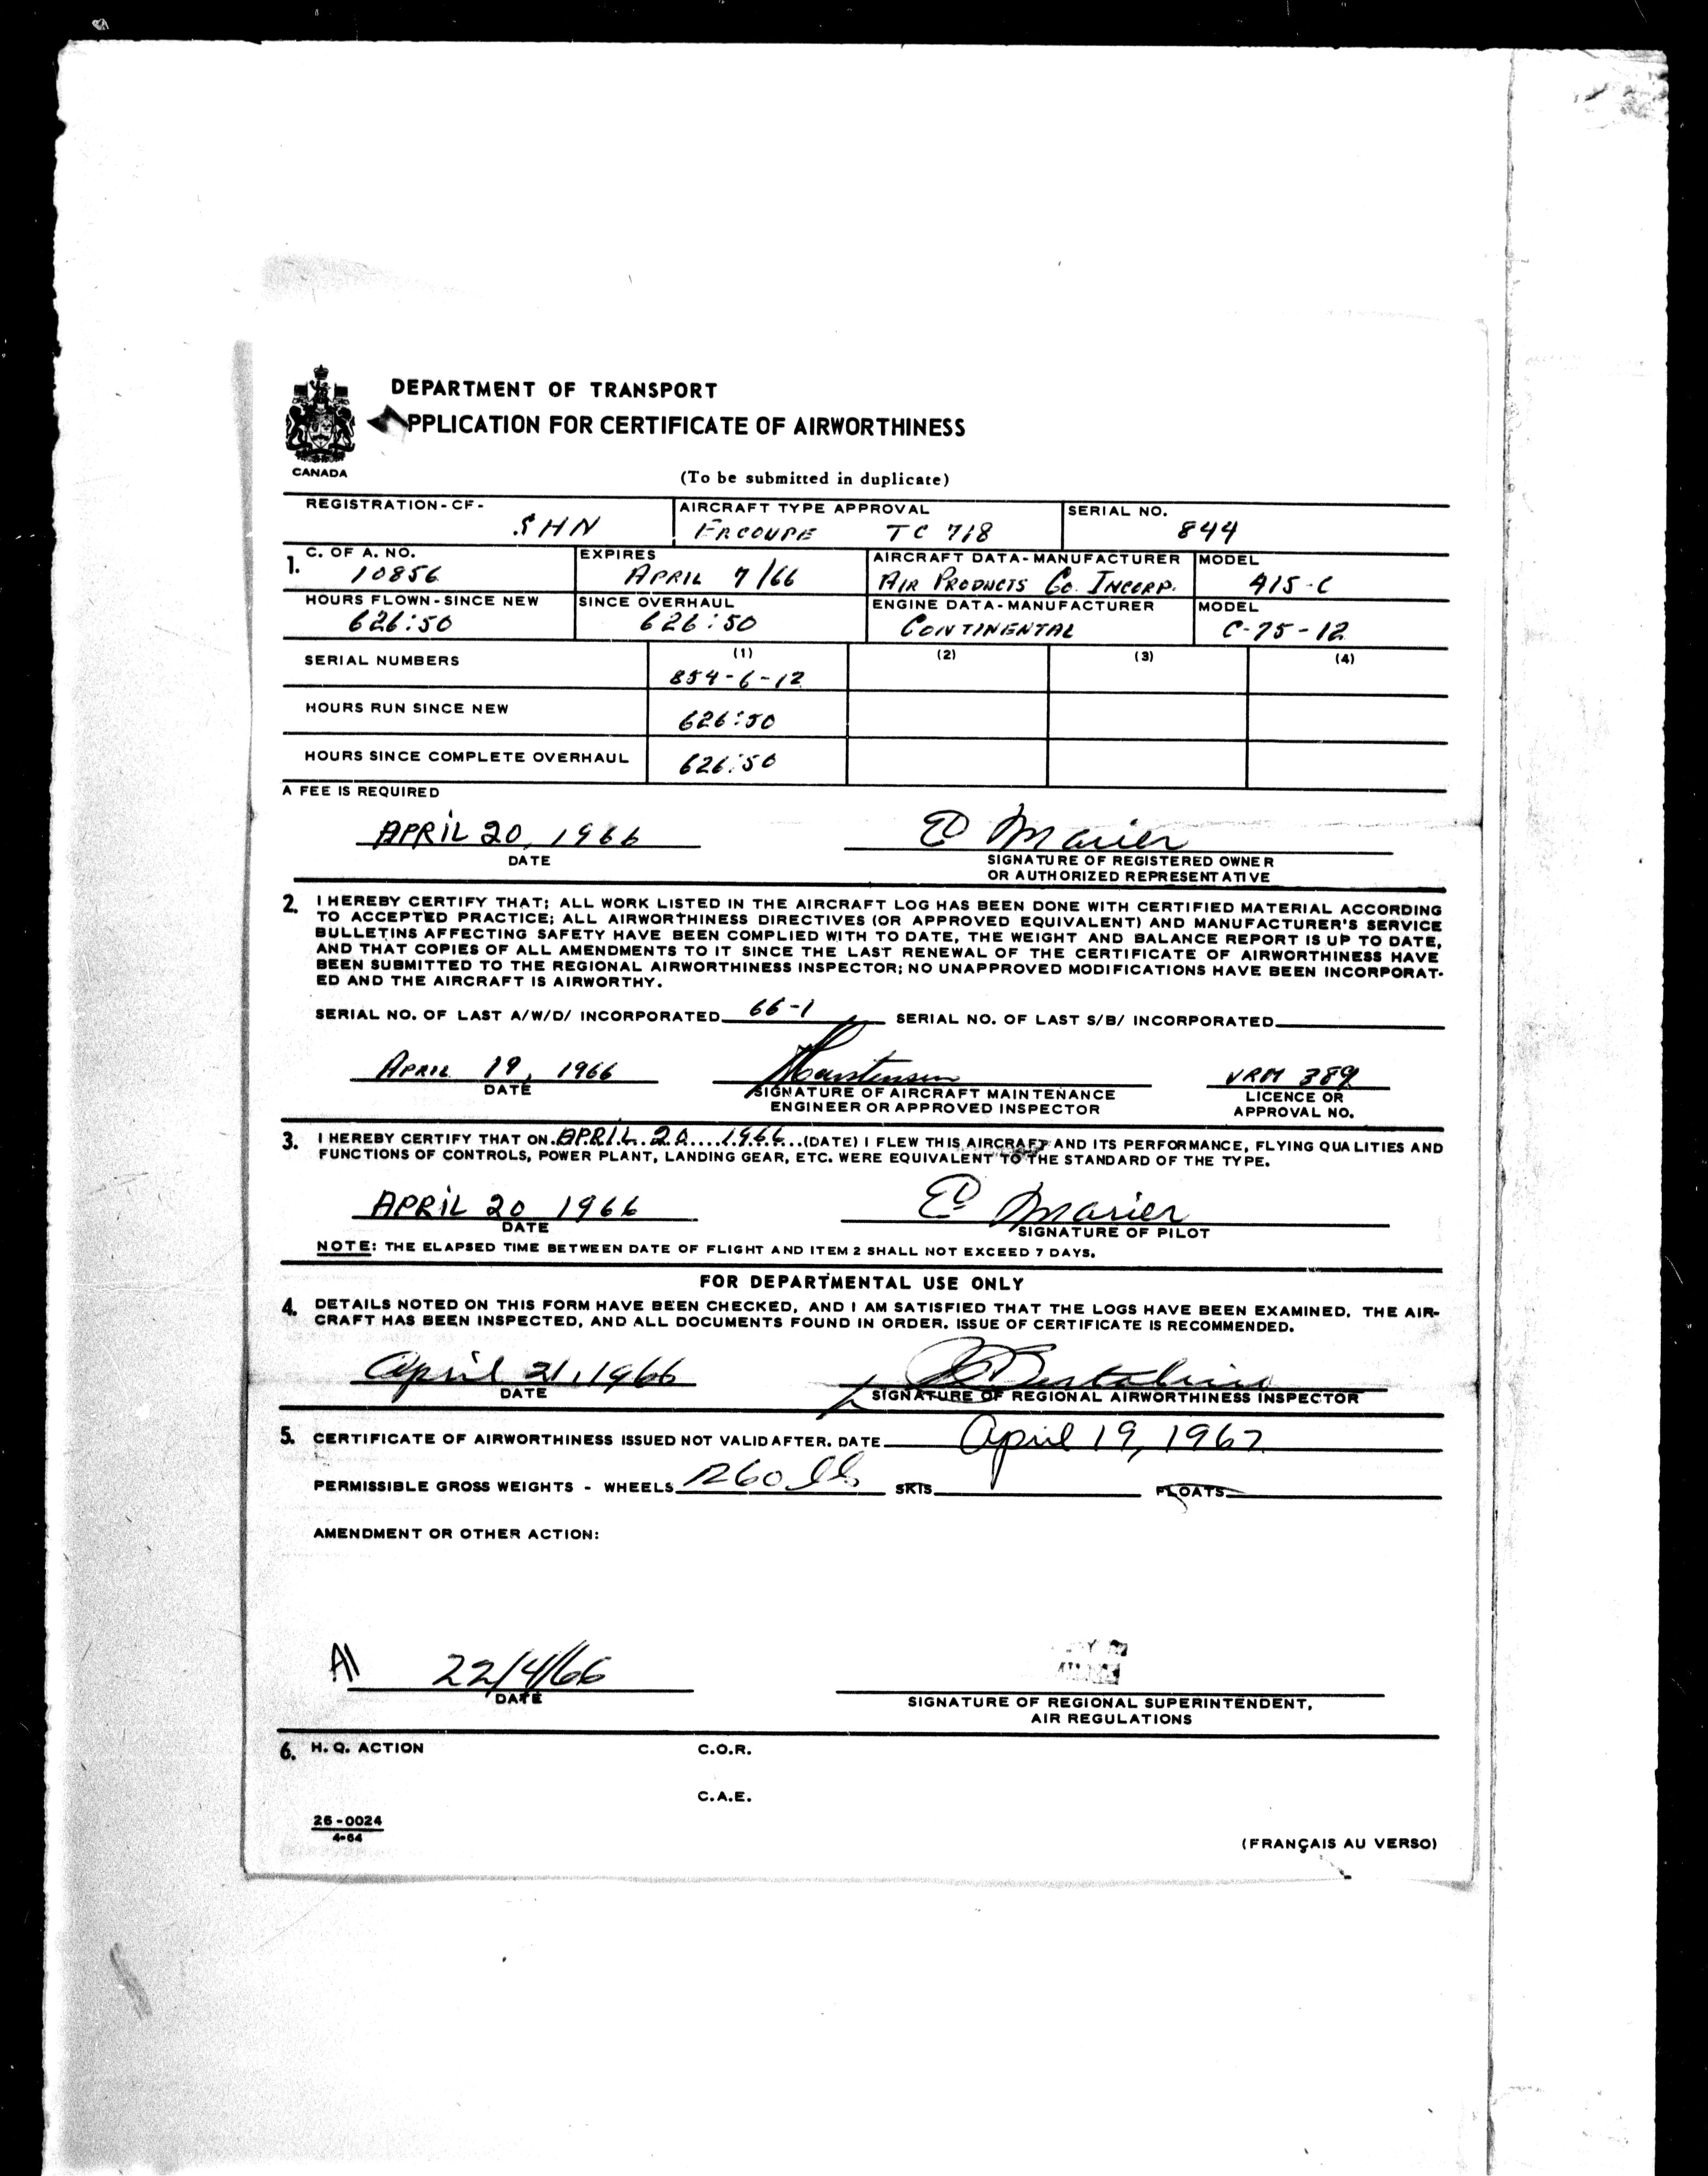 DEPARTMENT OF TRANSPORT
APPLICATION FOR CERTIFICATE OF AIRWORTHINESS
CANADA
(To be submitted in duplicate)
REGISTRATION-CF- AIRCRAFT TYPE APPROVAL SERIAL NO.
SHN ERCOUPE TC 718 844
1. C. OF A. NO. EXPIRES AIRCRAFT DATA-MANUFACTURER MODEL
10856 APRIL 7/66 AIR PRODUCTS CO. INCORP. 415-C
HOURS FLOWN-SINCE NEW SINCE OVERHAUL ENGINE DATA-MANUFACTURER MODEL
626:50 626:50 CONTINENTAL C-75-12
SERIAL NUMBERS (1) (2) (3) (4)
854-6-12
HOURS RUN SINCE NEW
626:50
HOURS SINCE COMPLETE OVERHAUL
626:50
A FEE IS REQUIRED
APRIL 20, 1966 Ed Marier
DATE SIGNATURE OF REGISTERED OWNER
OR AUTHORIZED REPRESENTATIVE
2. I HEREBY CERTIFY THAT; ALL WORK LISTED IN THE AIRCRAFT LOG HAS BEEN DONE WITH CERTIFIED MATERIAL ACCORDING
TO ACCEPTED PRACTICE; ALL AIRWORTHINESS DIRECTIVES (OR APPROVED EQUIVALENT) AND MANUFACTURER'S SERVICE
BULLETINS AFFECTING SAFETY HAVE BEEN COMPLIED WITH TO DATE, THE WEIGHT AND BALANCE REPORT IS UP TO DATE,
AND THAT COPIES OF ALL AMENDMENTS TO IT SINCE THE LAST RENEWAL OF THE CERTIFICATE OF AIRWORTHINESS HAVE
BEEN SUBMITTED TO THE REGIONAL AIRWORTHINESS INSPECTOR; NO UNAPPROVED MODIFICATIONS HAVE BEEN INCORPORAT-
ED AND THE AIRCRAFT IS AIRWORTHY.
SERIAL NO. OF LAST A/W/D/ INCORPORATED 66-1 SERIAL NO. OF LAST S/B/ INCORPORATED
APRIL 19, 1966 VRM 389
DATE SIGNATURE OF AIRCRAFT MAINTENANCE LICENCE OR
ENGINEER OR APPROVED INSPECTOR APPROVAL NO.
3. I HEREBY CERTIFY THAT ON APRIL 20 1966 (DATE) I FLEW THIS AIRCRAFT AND ITS PERFORMANCE, FLYING QUALITIES AND
FUNCTIONS OF CONTROLS, POWER PLANT, LANDING GEAR, ETC. WERE EQUIVALENT TO THE STANDARD OF THE TYPE.
APRIL 20 1966 Ed Marier
DATE SIGNATURE OF PILOT
NOTE: THE ELAPSED TIME BETWEEN DATE OF FLIGHT AND ITEM 2 SHALL NOT EXCEED 7 DAYS.
FOR DEPARTMENTAL USE ONLY
4. DETAILS NOTED ON THIS FORM HAVE BEEN CHECKED, AND I AM SATISFIED THAT THE LOGS HAVE BEEN EXAMINED. THE AIR-
CRAFT HAS BEEN INSPECTED, AND ALL DOCUMENTS FOUND IN ORDER. ISSUE OF CERTIFICATE IS RECOMMENDED.
April 21, 1966
DATE SIGNATURE OF REGIONAL AIRWORTHINESS INSPECTOR
5. CERTIFICATE OF AIRWORTHINESS ISSUED NOT VALID AFTER. DATE April 19, 1967
PERMISSIBLE GROSS WEIGHTS - WHEELS 1260 lb SKIS FLOATS
AMENDMENT OR OTHER ACTION:
AI 22/4/66
DATE SIGNATURE OF REGIONAL SUPERINTENDENT,
AIR REGULATIONS
6. H.Q. ACTION C.O.R.
C.A.E.
26-0024
4-64
(FRANÇAIS AU VERSO)